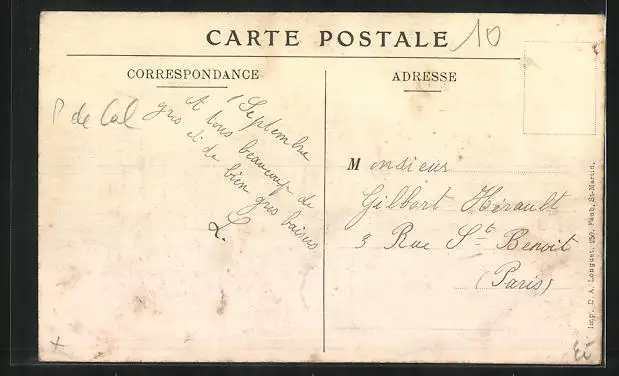 CARTE POSTALE
10
CORRESPONDANCE
P de Cal
1 Septembre
A tous beaucoup de
gros et de bien gros baisers
L.
ADRESSE
Monsieur
Gilbert Hérault
3 Rue St Benoit
(Paris)
Imp. D. A. Longuet, 250, Faub. St-Martin.